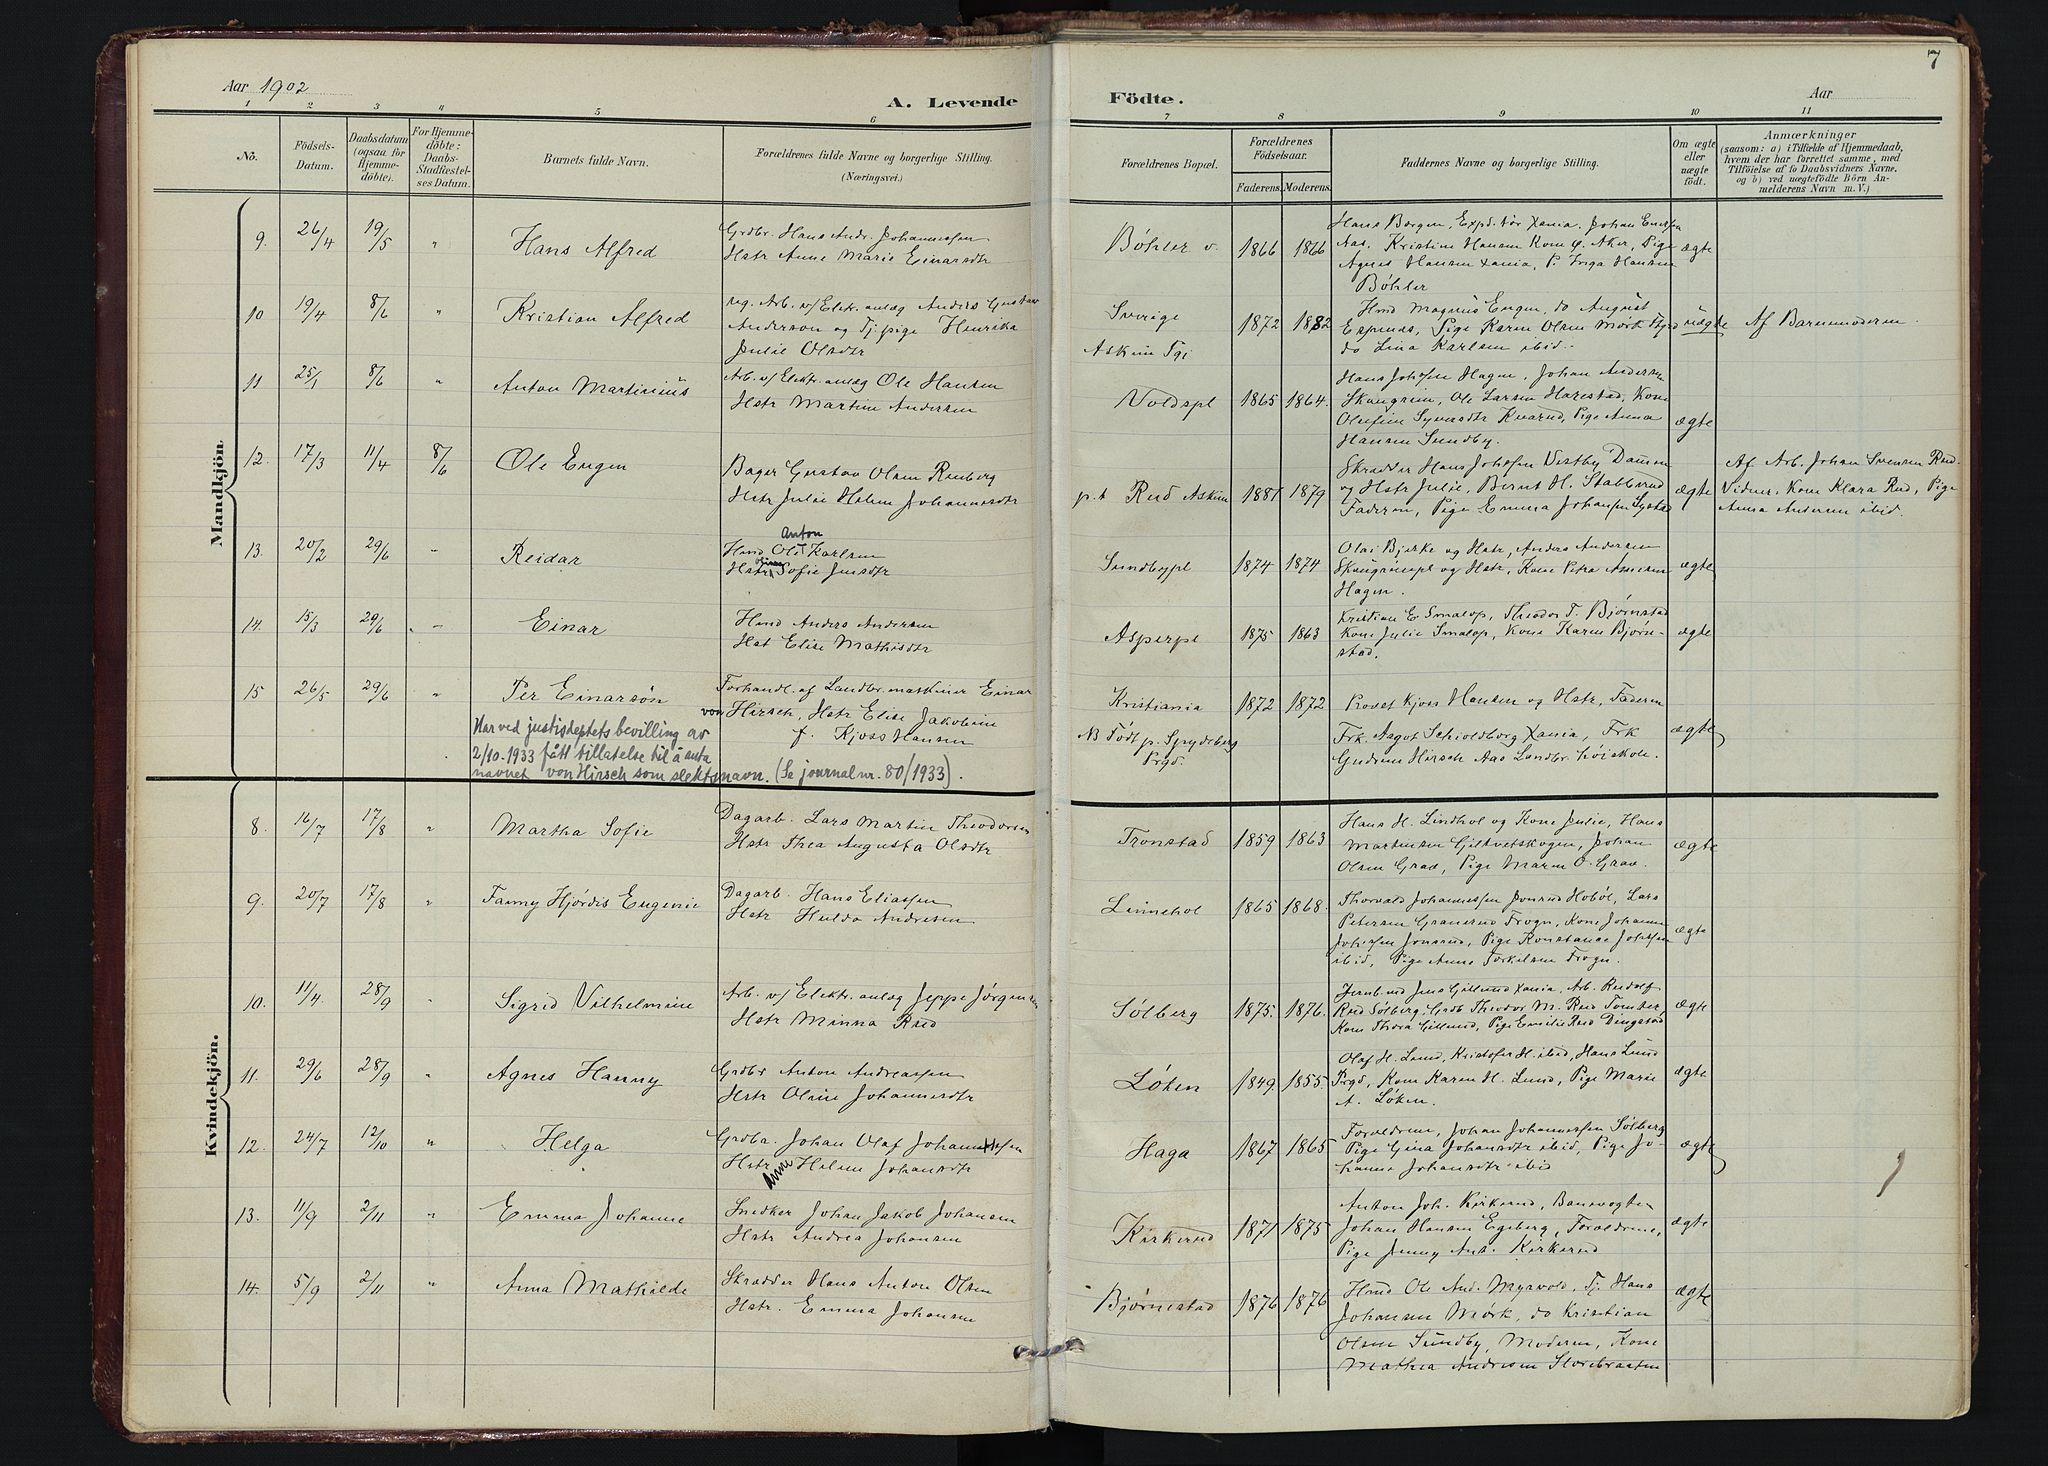 7
Aar 1902
Aar
A. Levende
Födte.
1 2 3 4 5 6 7 8 9 10 11
No.
Födsels-
Datum.
Daabsdatum
(ogsaa for
Hjemme-
döbte).
For Hjemme-
döbte:
Daabs-
Stadfæstel-
ses Datum.
Barnets fulde Navn.
Forældrenes fulde Navne og borgerlige Stilling.
(Næringsvei.)
Forældrenes Bopæl.
Forældrenes
Födselsaar.
Faderens. Moderens.
Faddernes Navne og borgerlige Stilling.
Om ægte
eller
uægte
födt.
Anmærkninger
(saasom: a) i Tilfælde af Hjemmedaab,
hvem der har forrettet samme, med
Tilföielse af to Daabsvidners Navne,
og b) ved uægtefödte Börn An-
melderens Navn m. V.)
Mandkjön
9. 26/4 19/5 " Hans Alfred
Grdbr. Hans Andr. Johannessen
Hstr Anne Marie Einarsdtr
Bøhler v. 1866 1866
Hans Borgen, Expd.tør Xania, Johan
Aas, Kristine Hansen Kom Aker, Pige
Agnes Hansen Xania, P. Inga Hansen
Bøhler
ægte
10 19/4 8/6 " Kristian Alfred
ug. Arb. v/ Elektr. anlæg Anders Gustav
Anderson og Tj.pige Henrika
Julie Olsdtr
Sverige
Askim Pgj
1872 1882
Hmd Magnus Engen, do August
Espenæs, Pige Karen Olsen Mørk
do Lina Karlsen ibid.
uægte
Af Barnemoderen.
11 25/1 8/6 " Anton Martinius
Arb. v/ Elektr. anlæg Ole Hansen
Hstr Martine Andersen
Voldspl 1865 1864.
Hans Johsen Hagen, Johan Andersen
Skaugrim, Ole Larsen Harestad, Kone
Olufine Syversdtr Kverud, Pige Anna
Hansen Sundby.
ægte
12. 17/3 11/4 8/6 Ole Eugen
Bager Gustav Olsen Renberg
Hstr Julie Helene Johannesdtr
p.t Rud Askim 1881 1879
Skrædder Hans Johsen Vestby Dammen
og Hstr Julie, Bernt H. Stabberud
Faderen, Pige Emma Johansen Systad
ægte
Af Arb. Johan Svensen Rud.
Vidner. Kone Klara Rud, Pige
Anna Andersen ibid.
13. 20/2 29/6 " Reidar
Anton
Hmd Ole Karlsen
Hstr Sofie Jensdtr
Sundbypl 1874 1874
Olai Bjerke og Hstr, Anders Andersen
Skaugrimpl og Hstr, Kone Petra Assersen
Hagen.
ægte
14. 15/3 29/6 " Einar
Hmd Anders Andersen
Hst Elise Mathisdtr
Asperpl 1875 1863
Kristian E Smalop, Theodor T. Bjørnstad
Kone Julie Smalop, Kone Karen Bjørn-
stad.
ægte
15 26/5 29/6 " Per Einarsøn
Forhandl. af Landbr. maskiner Einar
von Hirsch, Hstr Elise Jakobine
f. Kjoss Hansen
Kristiania
NB Født p. Spydeberg
Prgd.
1872 1872
Provst Kjoss Hansen og Hstr, Faderen
Frk. Aagot Schioldborg Xania, Frk
Gudrun Hirsch Aas Landbr. høiskole.
ægte
Har ved justisdeptets bevilling av
2/10-1933 fått tillatelse til å anta
navnet von Hirsch som slektsnavn. (Se journal nr. 80/1933).
Kvindekjön.
8. 16/7 17/8 " Martha Sofie
Dagarb. Lars Martin Theodorsen
Hstr Thea Augusta Olsdtr
Tronstad 1859 1863
Hans H. Lindhol og Kone Julie, Hans
Martinsen Giltvetskogen, Johan
Olsen Graa, Pige Maren O. Graa.
ægte
9. 20/7 17/8 " Fanny Hjørdis Eugenie
Dagarb. Hans Eliassen
Hstr Hulda Andresen
Linnehol 1865 1868.
Thorvald Johannessen Jonsrud Hobøl, Lars
Petersen Granerud Frogn, Kone Johanne
Johsen Jonsrud, Pige Konstanse Johsen
ibid, Pige Anne Torkilsen Frogn.
ægte
10. 11/4. 28/9 " Sigrid Vilhelmine
Arb. v/ Elektr. anlæg Jeppe Jørgensen
Hstr Minna Rud
Sølberg 1875. 1876.
Jernb.md Jens Gillund Xania, Arb. Rudolf
Rud Sølberg, Grdb Theodor M. Rud Tomter,
Kone Thora Gillund, Pige Emilie Rud Dingstad
ægte
11. 29/6 28/9 " Agnes Hanny
Grdbr Anton Andreassen
Hstr Oline Johannesdtr
Løken 1849 1855
Olaf H. Lund, Kristofer H. ibid, Hans Lund
Prgd, Kone Karen H. Lund, Pige Marie
A. Løken.
ægte
12. 24/7 12/10 " Helga
Grdbr. Johan Olaf Johannessen
Hstr Anne Helene Johansdtr
Haga 1867 1865
Forældrene, Johan Johannessen Sølberg
Pige Gina Johansdtr ibid, Pige Jo-
hanne Johansdtr ibid
ægte
13. 11/9 2/11 " Emma Johanne
Snedker Johan Jakob Johansen
Hstr Andrea Johansen
Kirkerud 1871 1875
Anton Joh. Kirkerud, Banevogter
Johan Hansen Egeberg, Forældrene,
Pige Jenny Ant. Kirkerud
ægte
14. 5/9 2/11 " Anna Mathilde
Skrædder Hans Anton Olsen
Hstr. Emma Johansen
Bjørnestad 1876 1876
Hmd Ole And. Myrvold, Tj. Hans
Johansen Mørk, do Kristian
Olsen Sundby, Moderen, Kone
Mathea Andresen Storebraaten
ægte